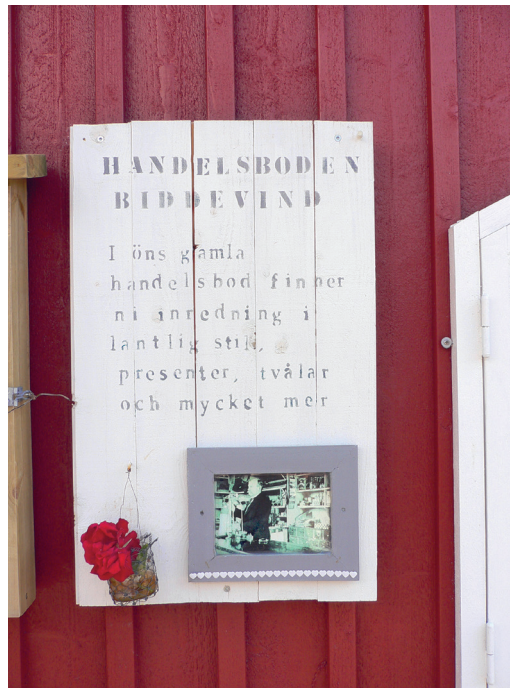 HANDELSBODEN
BIDDEVIND
I öns gamla
handelsbod finner
ni inredning i
lantlig stil,
presenter, tvålar
och mycket mer